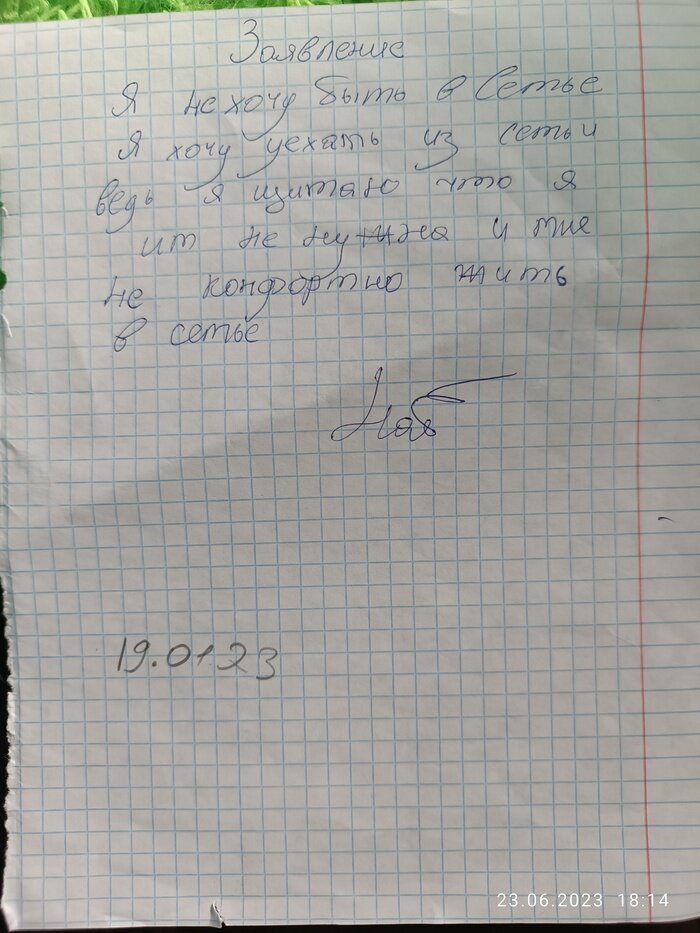 Заявление
Я не хочу быть в Семье
Я хочу уехать из семьи
ведь я щитаю что я
им не нужна и мне
не конфортно жить
в семье
19.01.23
23.06.2023 18:14